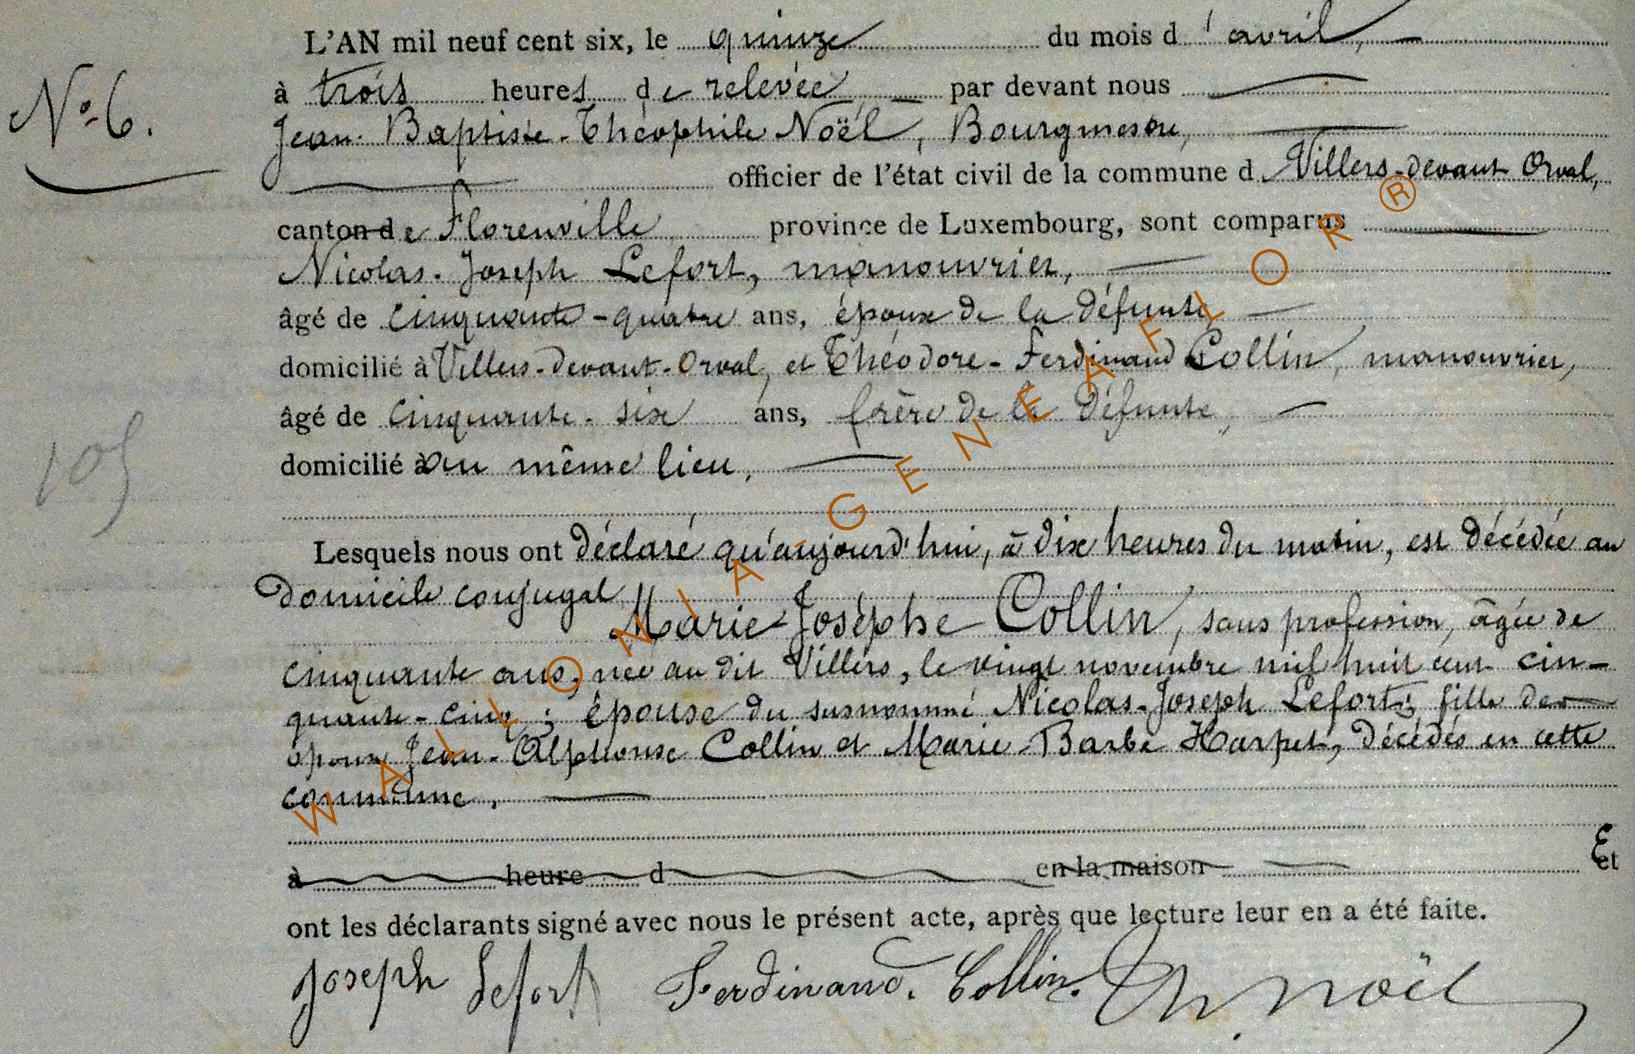 L'AN mil neuf cent six, le quinze du mois d'avril,
N° 6.
à trois heures de relevée, par devant nous
Jean-Baptiste-Théophile Noël, Bourgmestre,
officier de l'état civil de la commune d Villers-devant Orval,
canton de Florenville province de Luxembourg, sont comparus
Nicolas-Joseph Lefort, manouvrier,
âgé de cinquante-quatre ans, époux de la défunte,
domicilié à Villers-devant-Orval, et Théodore-Ferdinand Collin, manouvrier,
âgé de cinquante-six ans, frère de la défunte,
domicilié au même lieu,
105
Lesquels nous ont déclaré qu'aujourd'hui, à dix heures du matin, est décédée au
domicile conjugal
Marie-Joséphe Collin, sans profession, âgée de
cinquante ans, née au dit Villers, le vingt novembre mil huit cent cin-
quante-cinq; épouse du susnommé Nicolas-Joseph Lefort; fille des
époux Jean-Alphonse Collin et Marie-Barbe Harpet, décédés en cette
commune.
à heure d en la maison Et
ont les déclarants signé avec nous le présent acte, après que lecture leur en a été faite.
Joseph Lefort Ferdinand Collin. Th. Noël
WALLONIA-GENEAFLOR®